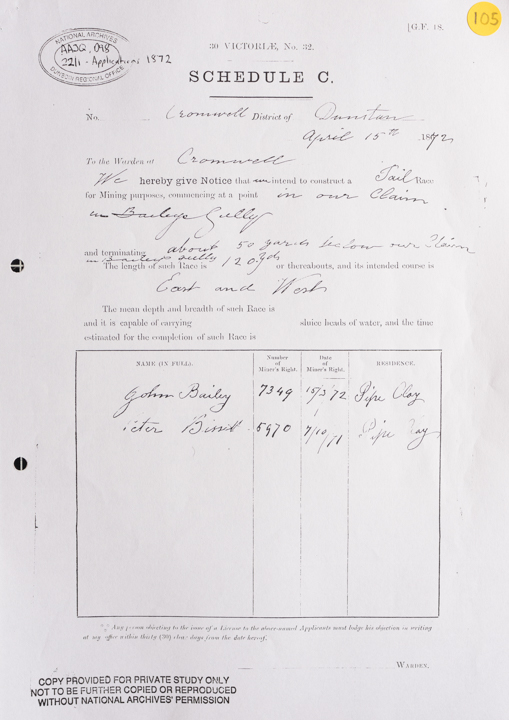 105
[G.F. 18.
NATIONAL ARCHIVES
AAJQ, 098
22/1 - Applications 1872
DUNEDIN REGIONAL OFFICE
30 VICTORIÆ, No. 32.
SCHEDULE C.
No. Cromwell District of Dunstan
April 15th 1872
To the Warden at Cromwell
We hereby give Notice that we intend to construct a Tail Race
for Mining purposes, commencing at a point in our Claim
in Baileys Gully
and terminating about 50 yards below our Claim
in Baileys Gully
The length of such Race is 120 yds or thereabouts, and its intended course is
East and West
The mean depth and breadth of such Race is
and it is capable of carrying sluice heads of water, and the time
estimated for the completion of such Race is
NAME (IN FULL). Number of Miner's Right. Date of Miner's Right. RESIDENCE.
John Bailey 7349 15/3/72 Pipe Clay
5970 7/10/71 Pipe
Any person objecting to the issue of a License to the above-named Applicants must lodge his objection in writing
at my office within thirty (30) clear days from the date hereof.
WARDEN.
COPY PROVIDED FOR PRIVATE STUDY ONLY
NOT TO BE FURTHER COPIED OR REPRODUCED
WITHOUT NATIONAL ARCHIVES' PERMISSION